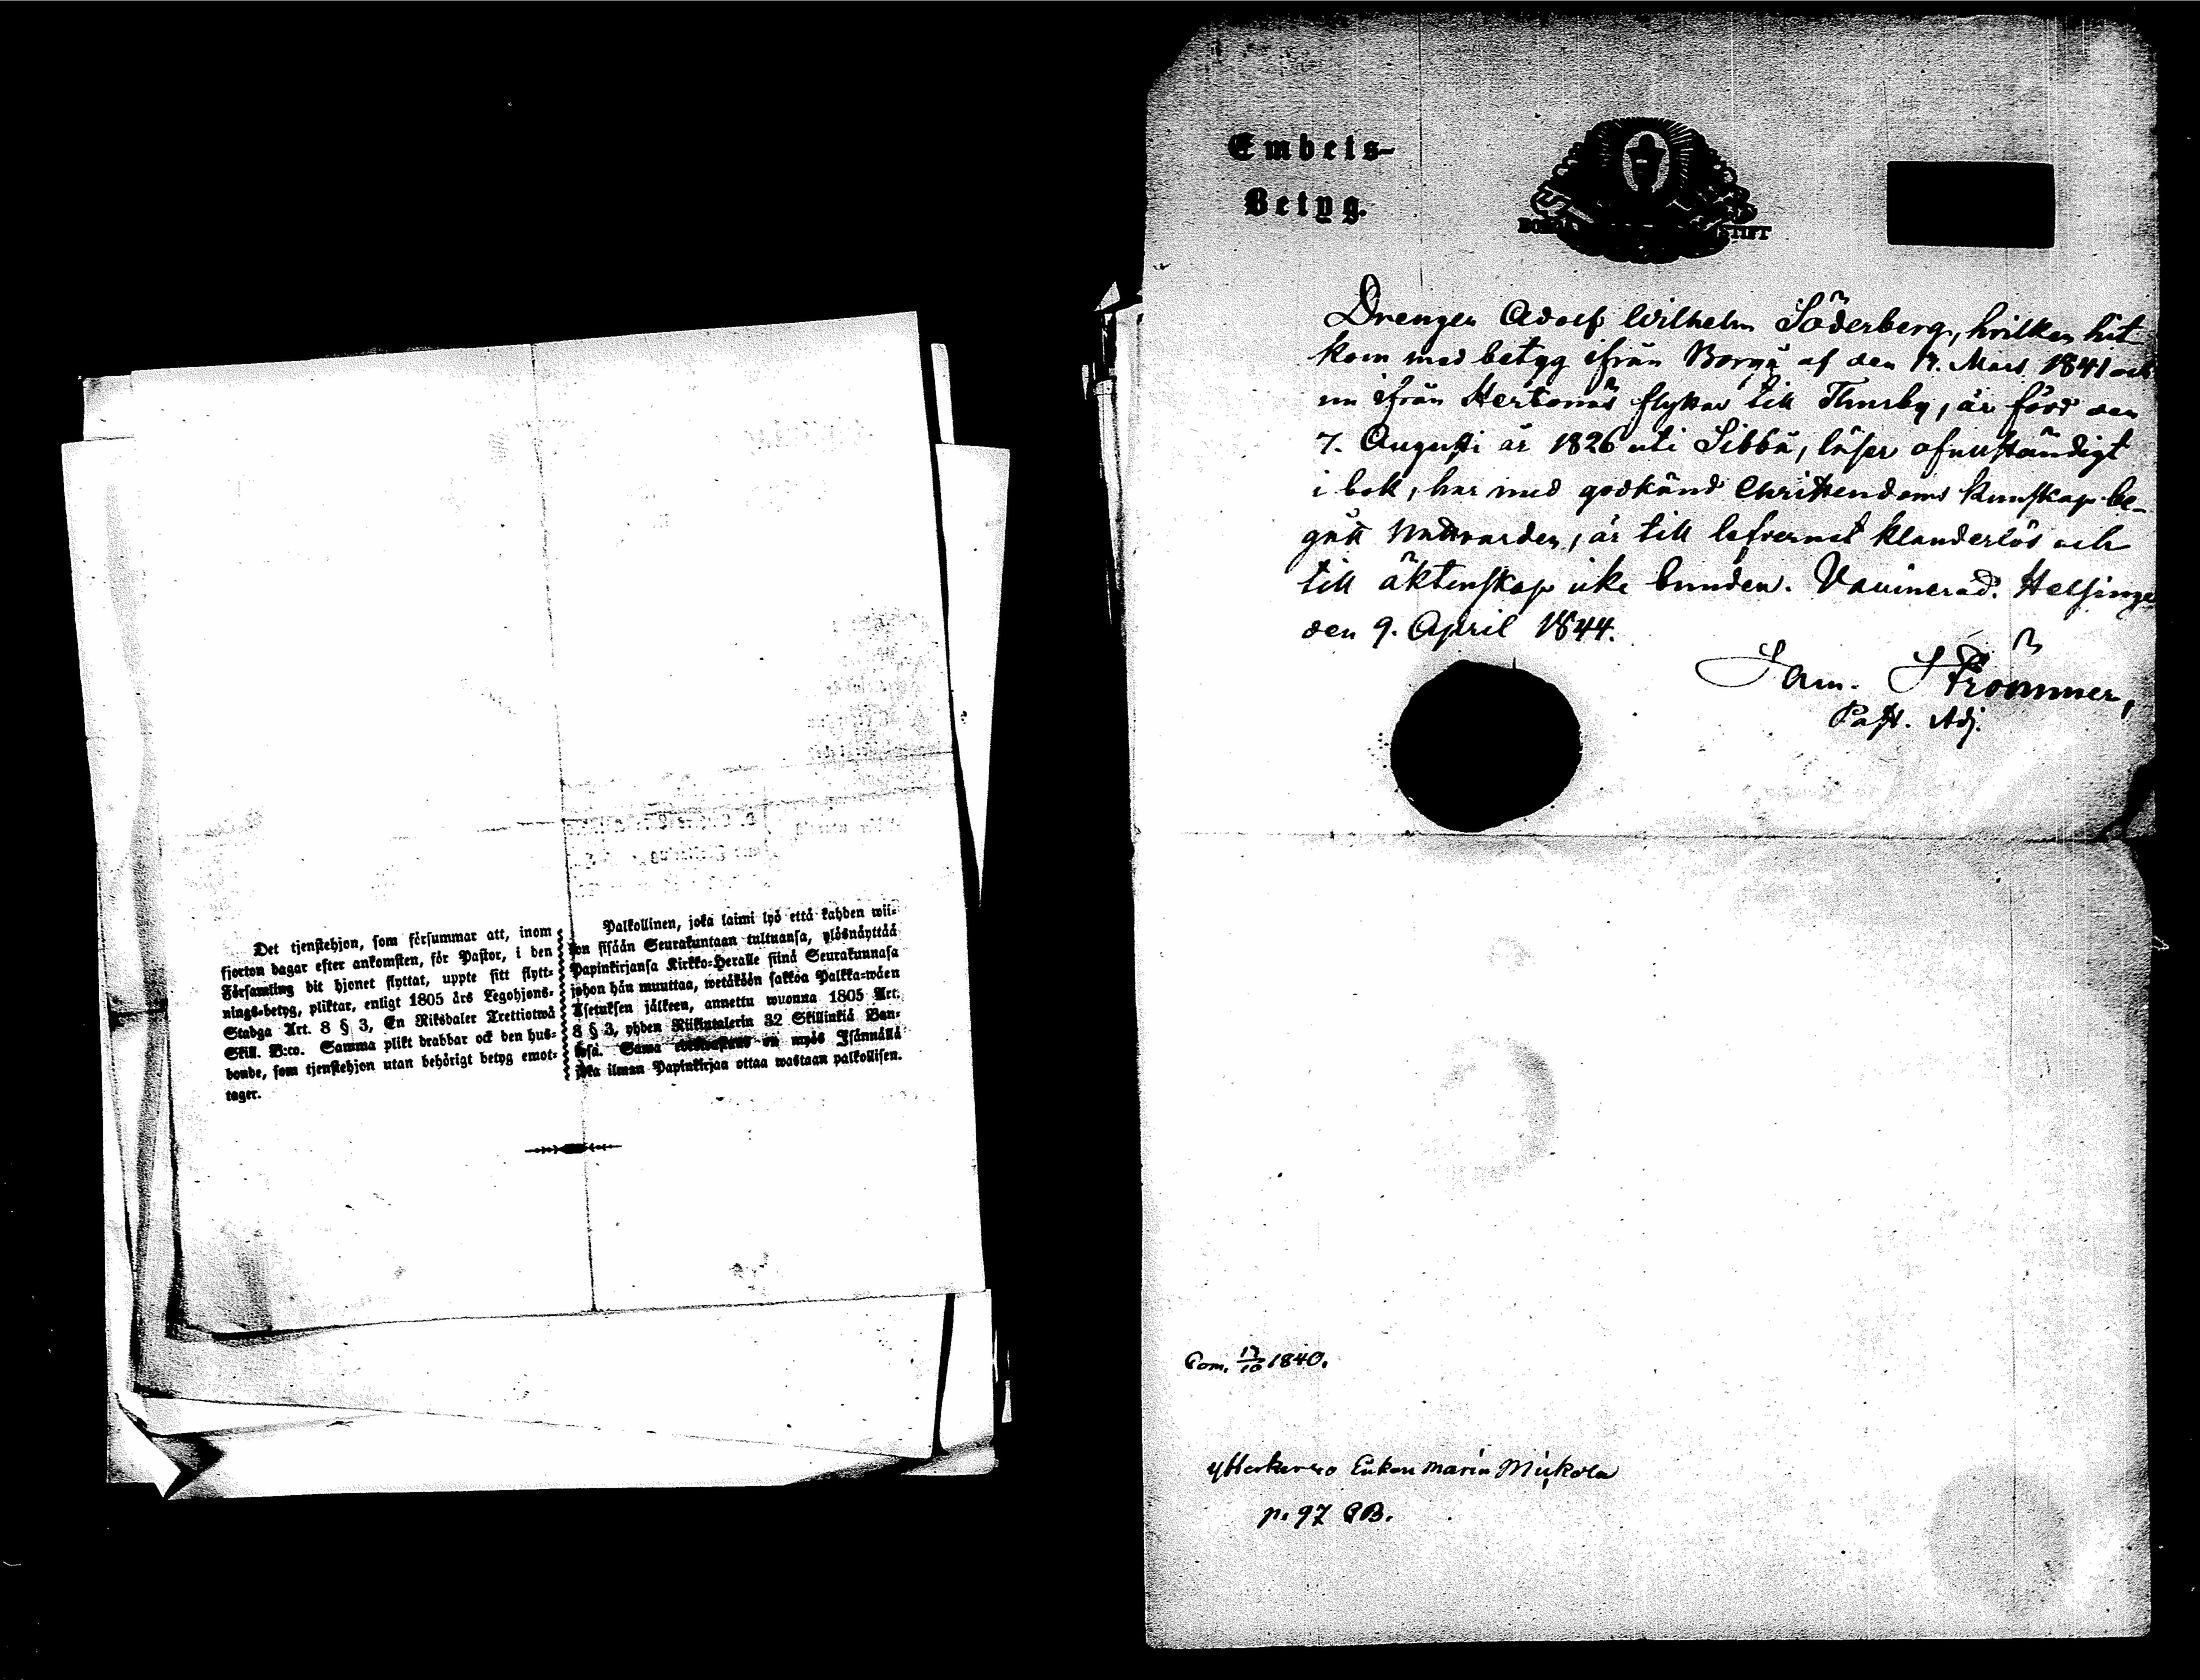 Det tjenstehjon, som försummar att, inom
fjorton dagar efter ankomsten, för Pastor, i den
Församling dit hjonet flyttat, uppte sitt flytt-
nings-betyg, pliktar, enligt 1805 års Legohjons-
Stadga Art. 8 § 3, En Riksdaler Trettiotwå
Skill. B:co. Samma plikt drabbar ock den hus-
bonde, som tjenstehjon utan behörigt betyg emot-
tager.
Palkollinen, joka laimi lyö että kahden wii-
kon sisään Seurakuntaan tultuansa, ylösnäyttää
Papinkirjansa Kirkko-Heralle siinä Seurakunnasa
johon hän muuttaa, wetäköön sakkoa Palkka-wäen
Asetuksen jälkeen, annettu wuonna 1805 Art.
8 § 3, yhden Riikintalerin 32 Skillinkiä Ban-
kosa. Sama on myös Isännällä
joka ilman Papinkirjaa ottaa wastaan palkollisen.
Embets-
Betyg.
STIFT
Drengen Adolf Wilhelm Söderberg, hvilken hit
kom med betyg ifrån Borgå af den 17. Mars 1841 och
nu ifrån Hertonäs flyttar till Thusby, är född den
7. Augusti år 1826 uti Sibbå, läser ofullständigt
i bok, har med godkänd Christendoms kunskap be-
gått Nattvarden, är till lefvernet klanderlös och
till äktenskap icke bunden. Vaccinerad. Helsinge
den 9. April 1844.
Sam. Strömmer,
Past. Adj.
Com. 17/10 1840.
Enkan Maria Mickola
p. 97 CB.